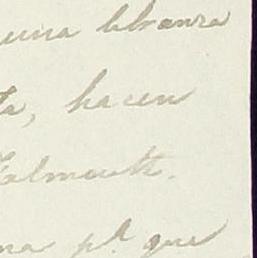 una libranza
ta, hacen
Falmouth.
na pª que